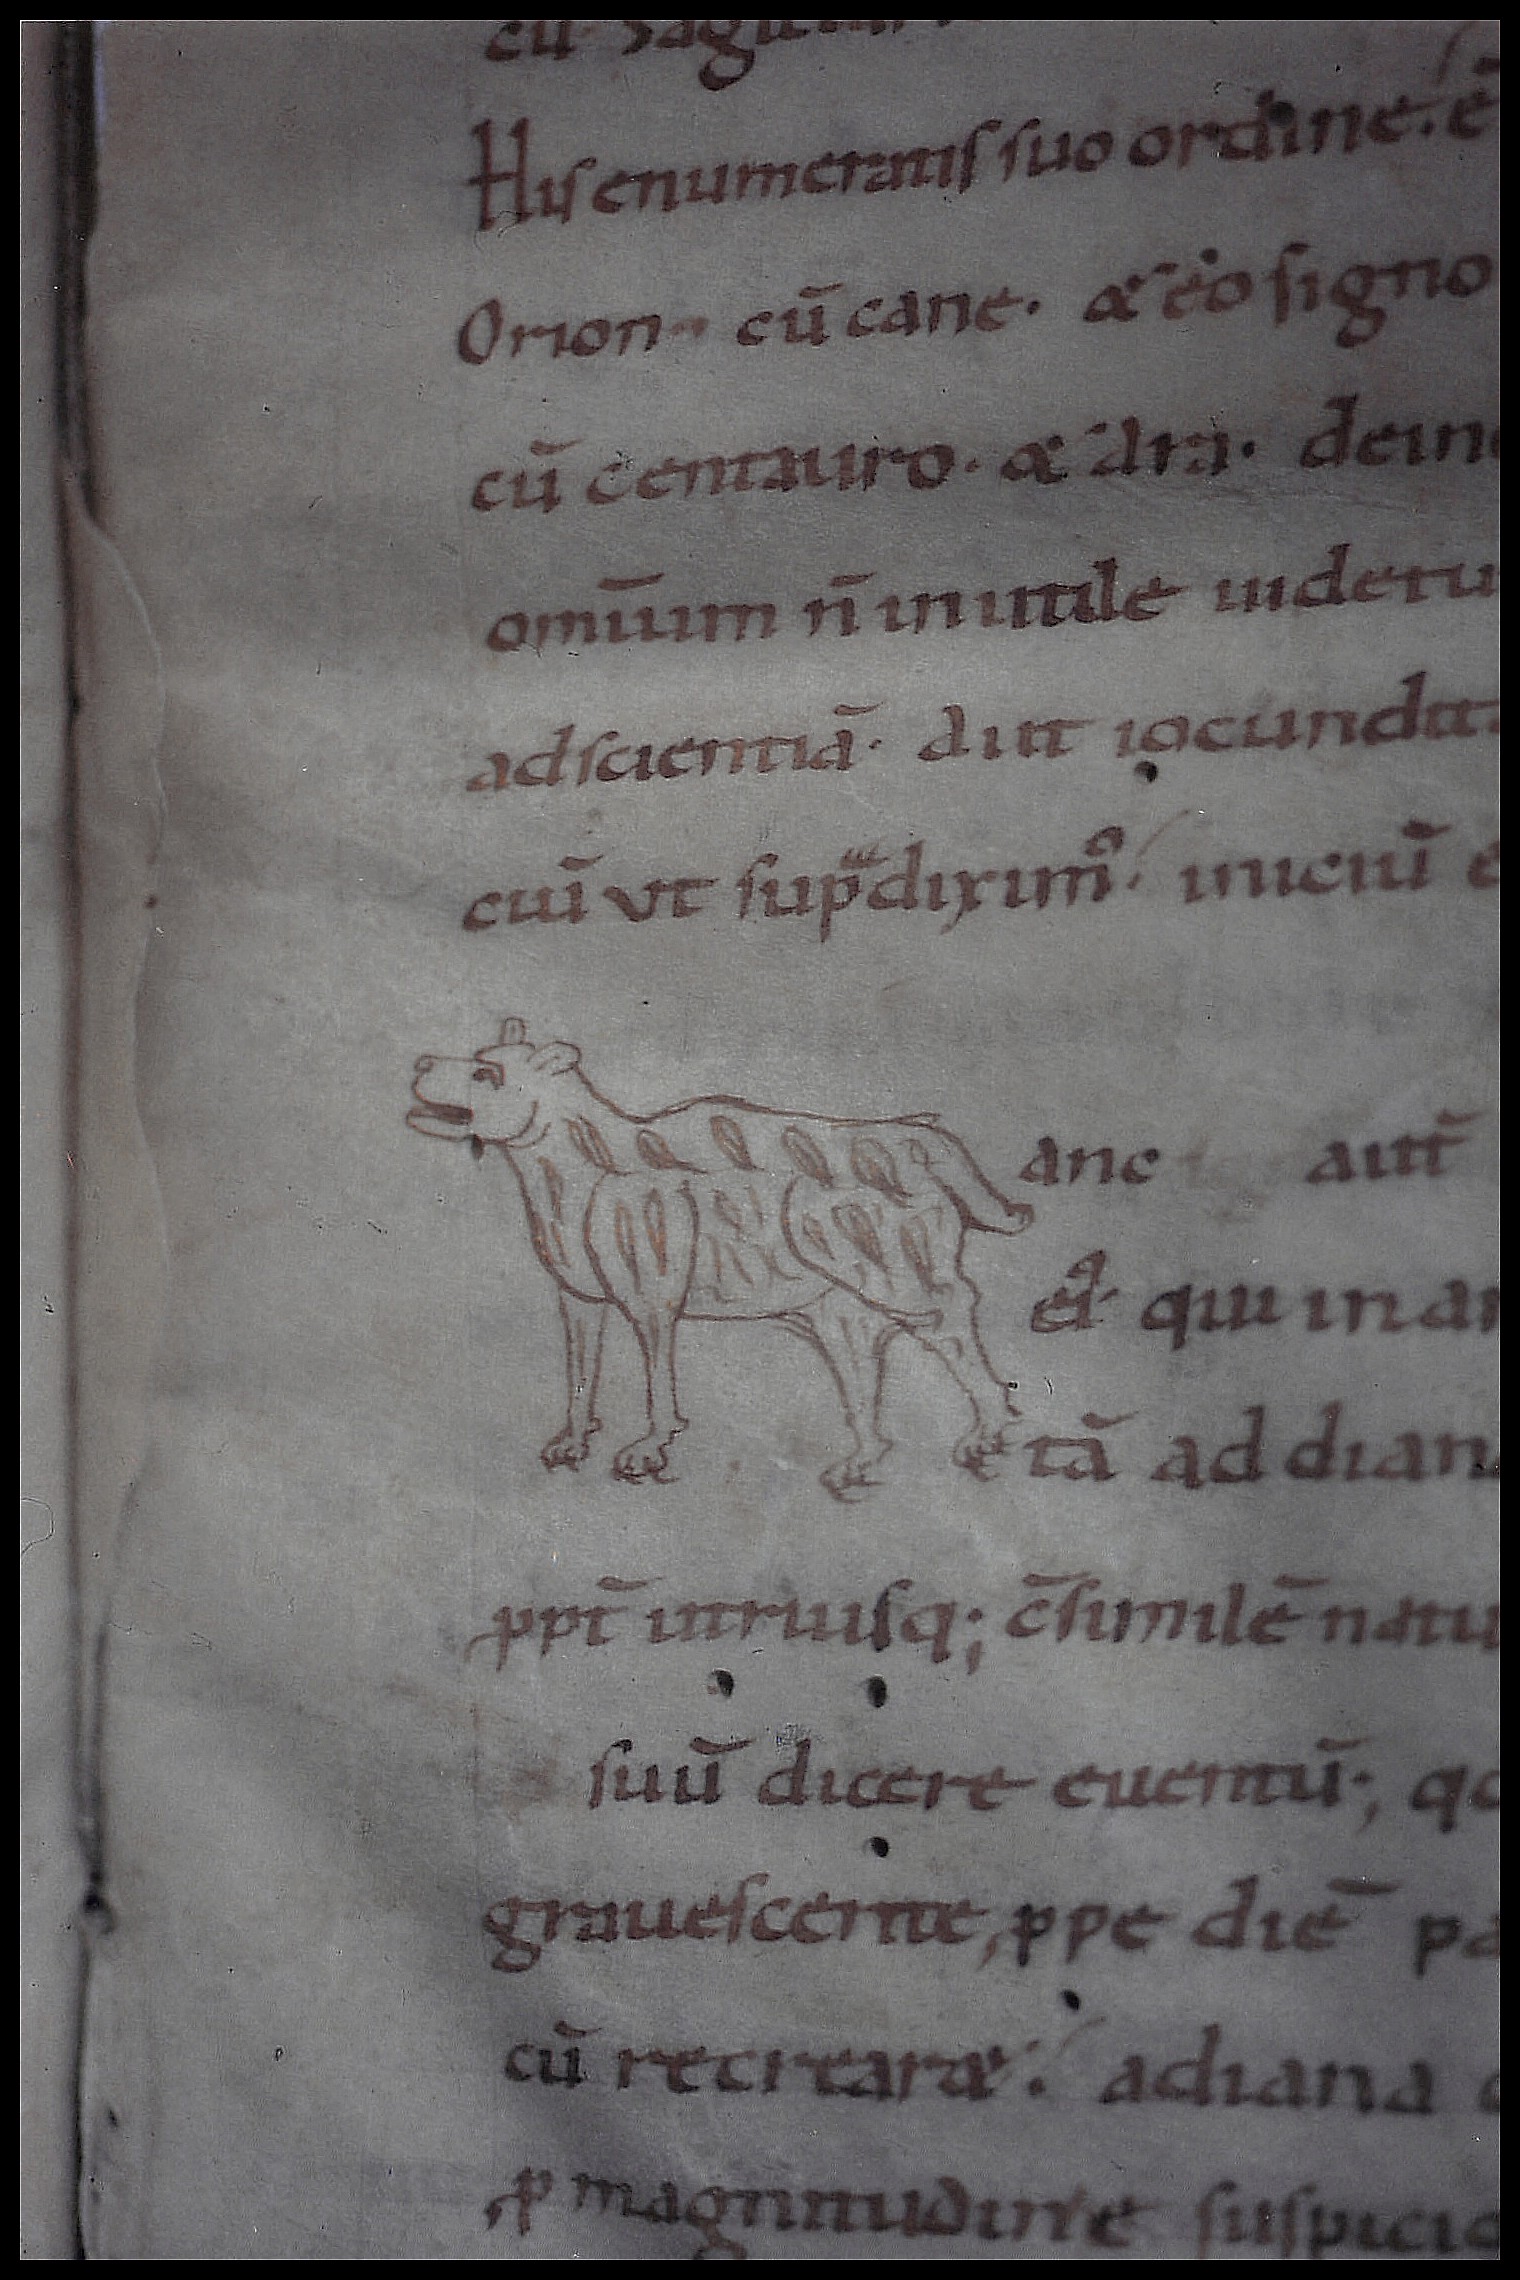 cū Sagitta
Hıs enumeratis suo ordine. ē
Orion cū cane. & eo signo
cū centauro. & Ara. dein
omīum n̄ inutile uidetu
ad scientiā. aut iocundit
cuī ut sup̄dixim᷒. iniciū e
anc aut̄
qui in ar
tā ad dian
ppt̄ intriusq; c̄similē natu
suū dicere euentū; qd
grauescente, ppe diē pa
cū recrearæ. a diana
p magnitudine suspicio